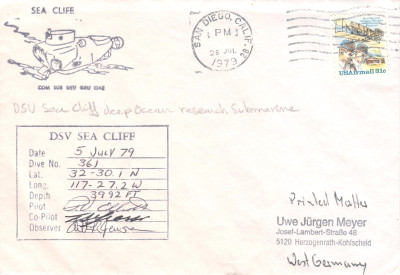 SEA CLIFF
COM SUB DEV GRU ONE
SAN DIEGO, CALIF.
PM
28 JUL
1979
USAirmail 31c
DSV Sea Cliff deep Ocean research Submarine
DSV SEA CLIFF
Date 5 JULY 79
Dive No. 361
Lat. 32-30.1 N
Long. 117-27.2 W
Depth 3992 FT
Pilot
Co-Pilot
Observer
Printed Matter
Uwe Jürgen Meyer
Josef-Lambert-Straße 48
5120 Herzogenrath-Kohlscheid
West Germany